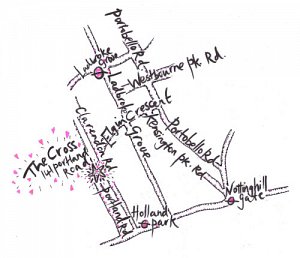 Portobello Rd.
Ladbroke
Grove
Westbourne pk. Rd.
Ladbroke Grove
Elgin Crescent
Kensington pk. Rd
Portobello Rd.
Clarendon Rd
The Cross
141 portland
Road
Portland Rd
Holland
park
Nottinghill
gate